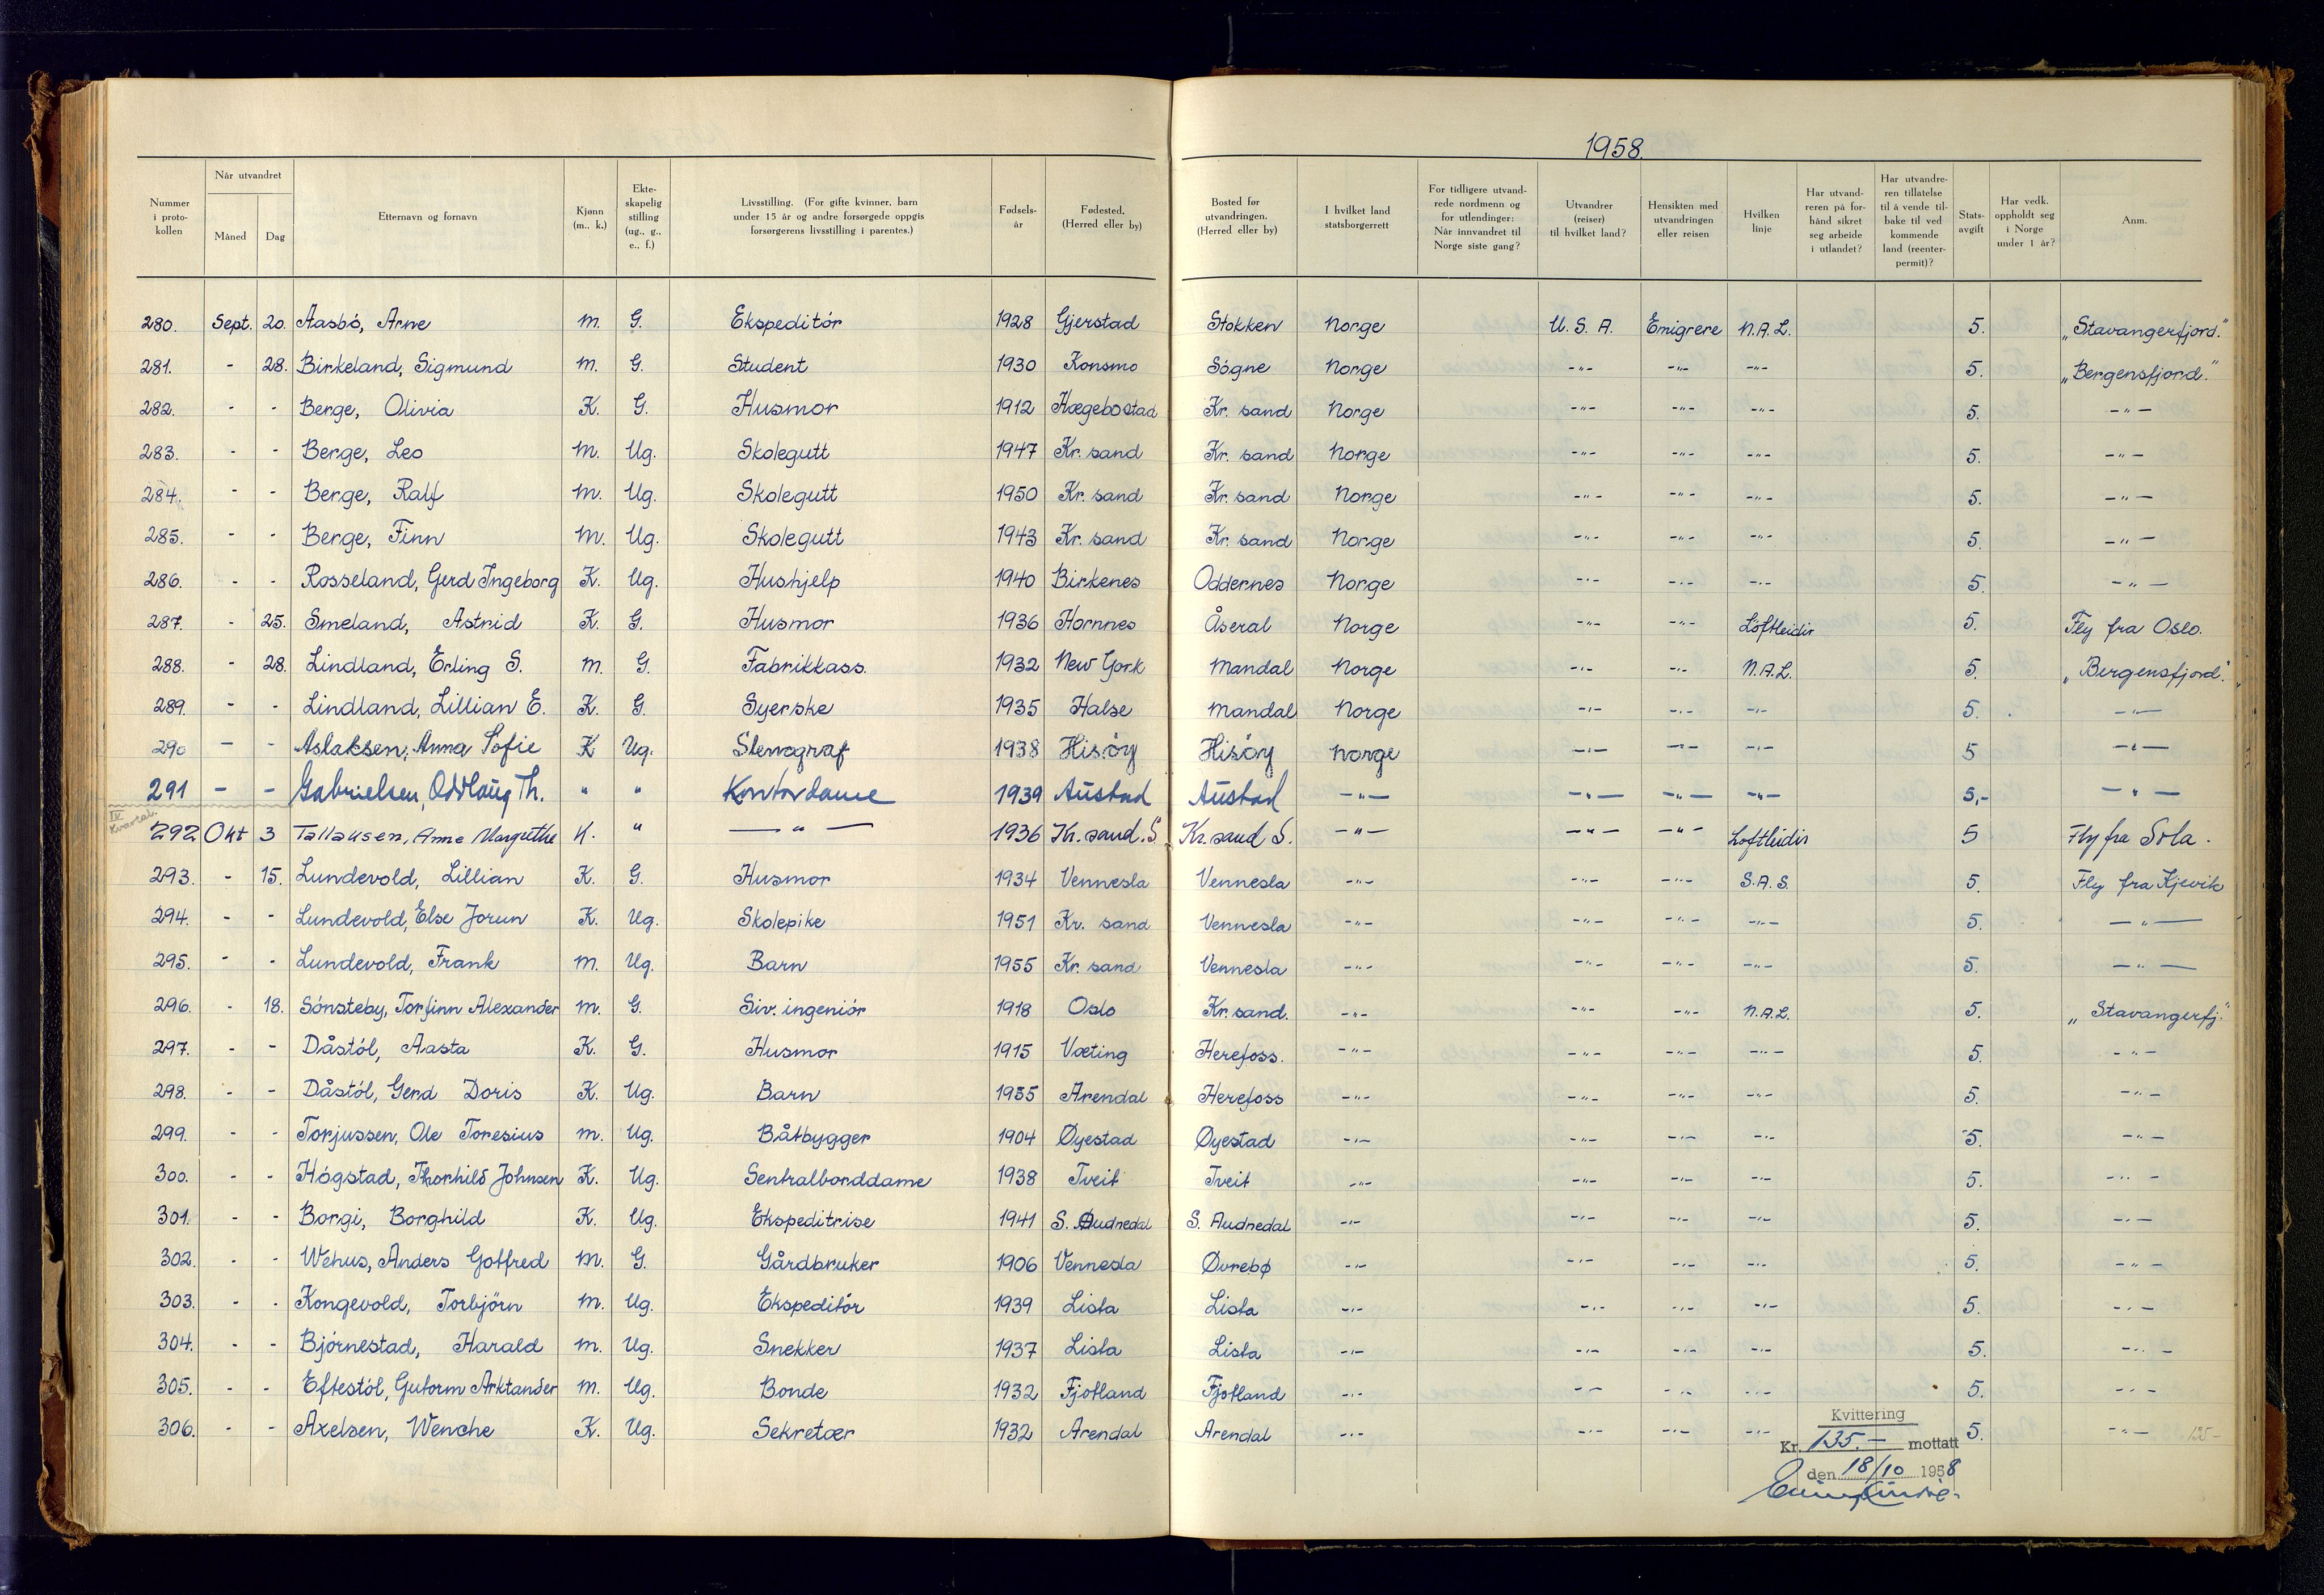 1958.
Nummer i proto-kollen | Når utvandret Måned Dag | Etternavn og fornavn | Kjønn (m., k.) | Ekte-skapelig stilling (ug., g., e., f.) | Livsstilling. (For gifte kvinner, barn under 15 år og andre forsørgede oppgis forsørgerens livsstilling i parentes.) | Fødsels-år | Fødested. (Herred eller by) | Bosted før utvandringen. (Herred eller by) | I hvilket land statsborgerrett | For tidligere utvand-rede nordmenn og for utlendinger: Når innvandret til Norge siste gang? | Utvandrer (reiser) til hvilket land? | Hensikten med utvandringen eller reisen | Hvilken linje | Har utvand-reren på for-hånd sikret seg arbeide i utlandet? | Har utvandre-ren tillatelse til å vende til-bake til ved kommende land (reenter-permit)? | Stats-avgift | Har vedk. oppholdt seg i Norge under 1 år? | Anm.
280. Sept. 20. Aasbó, Arne m. G. Ekspeditór 1928 Gjerstad Stokken Norge U.S.A. Emigrere N.A.L. 5. „Stavangerfjord."
281. - 28. Birkeland, Sigmund m. G. Student 1930 Konsmo Sógne Norge -"- -"- -"- 5. „Bergensfjord."
282. - - Berge, Olivia K. G. Husmor 1912 Hægebostad Kr. sand Norge -"- -"- -"- 5. -"-
283. - - Berge, Leo m. Ug. Skolegutt 1947 Kr. sand Kr. sand Norge -"- -"- -"- 5. -"-
284. - - Berge, Ralf m. Ug. Skolegutt 1950 Kr. sand Kr. sand Norge -"- -"- -"- 5. -"-
285. - - Berge, Finn m. Ug. Skolegutt 1943 Kr. sand Kr. sand Norge -"- -"- -"- 5. -"-
286. - - Rosseland, Gerd Ingeborg K. Ug. Hushjelp 1940 Birkenes Oddernes Norge -"- -"- -"- 5. -"-
287. - 25. Smeland, Astrid K. G. Husmor 1936 Hornnes Åseral Norge -"- -"- Loftleidir 5. Fly fra Oslo.
288. - 28. Lindland, Erling S. m. G. Fabrikkass. 1932 New York Mandal Norge -"- -"- N.A.L. 5. „Bergensfjord."
289. - - Lindland, Lillian E. K. G. Syerske 1935 Halse Mandal Norge -"- -"- -"- 5. -"-
290 - - Aslaksen, Anna Sofie K Ug. Stenograf 1938 Hisóy Hisóy Norge -"- -"- -"- 5 -"-
291 - - Gabrielsen, Oddlaug Th. " " Kontordame 1939 Austad Austad -"- -"- -"- -"- 5,- -"-
IV Kvartal.
292 Okt 3 Tallaksen, Anne Margrethe K. " -"- 1936 Kr. sand. S Kr. sand S. -"- -"- -"- Loftleidir 5 Fly fra Sola.
293. - 15. Lundevold, Lillian K. G. Husmor 1934 Vennesla Vennesla -"- -"- -"- S.A.S. 5. Fly fra Kjevik
294. - - Lundevold, Else Jorun K. Ug. Skolepike 1951 Kr. sand Vennesla -"- -"- -"- -"- 5. -"-
295. - - Lundevold, Frank m. Ug. Barn 1955 Kr. sand Vennesla -"- -"- -"- -"- 5. -"-
296. - 18. Sónsteby, Torfinn Alexander m. G. Siv. ingeniór 1918 Oslo Kr. sand. -"- -"- -"- N.A.L. 5. „Stavangerfj."
297. - - Dåstól, Aasta K. G. Husmor 1915 Væting Herefoss. -"- -"- -"- -"- 5. -"-
298. - - Dåstól, Gerd Doris K. Ug. Barn 1955 Arendal Herefoss -"- -"- -"- -"- 5. -"-
299. - - Torjussen, Ole Toresius m. Ug. Båtbygger 1904 Øyestad Øyestad -"- -"- -"- -"- 5. -"-
300. - - Hógstad, Thorhild Johnsen K. Ug. Sentralborddame 1938 Tveit Tveit -"- -"- -"- -"- 5. -"-
301. - - Borgi, Borghild K. Ug. Ekspeditrise 1941 S. Audnedal S. Audnedal -"- -"- -"- -"- 5. -"-
302. - - Wehus, Anders Gotfred m. G. Gårdbruker 1906 Vennesla Øvrebø -"- -"- -"- -"- 5. -"-
303. - - Kongevold, Torbjórn m. Ug. Ekspeditór 1939 Lista Lista -"- -"- -"- -"- 5. -"-
304. - - Bjórnestad, Harald m. Ug. Snekker 1937 Lista Lista -"- -"- -"- -"- 5. -"-
305. - - Eftestól, Gutorm Arktander m. Ug. Bonde 1932 Fjotland Fjotland -"- -"- -"- -"- 5. -"-
306. - - Axelsen, Wenche K. Ug. Sekretær 1932 Arendal Arendal -"- -"- -"- -"- 5. -"- 135-
Kvittering
Kr. 135.- mottatt
den 18/10 1958